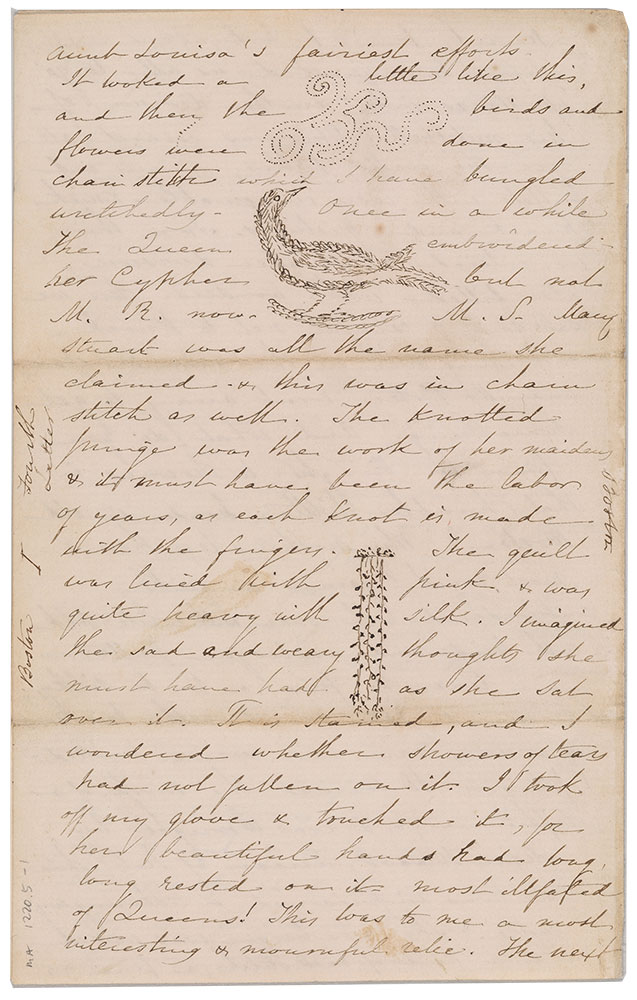 aunt Louisa's fairiest efforts.
It looked a little like this,
and then the birds and
flowers were done in
chain stitch which I have bungled
wretchedly - Once in a while
The Queen embroidered
her Cypher but not
M. R. now. M. S. Mary
Stuart was all the name she
claimed - & this was in chain
stitch as well. The Knotted
fringe was the work of her maidens
& it must have been the labor
of years, as each Knot is made
with the fingers. The quilt
was lined with pink & was
quite heavy with silk. I imagined
the sad and weary thoughts she
must have had as she sat
over it. It is stained, and I
wondered whether showers of tears
had not fallen on it. I took
off my glove & touched it, for
her beautiful hands had long,
long rested on it most illfated
of Queens! This was to me a most
interesting & mournful relic. The next
Boston I Fourth
Letter
Boston
MA 1220.5-1